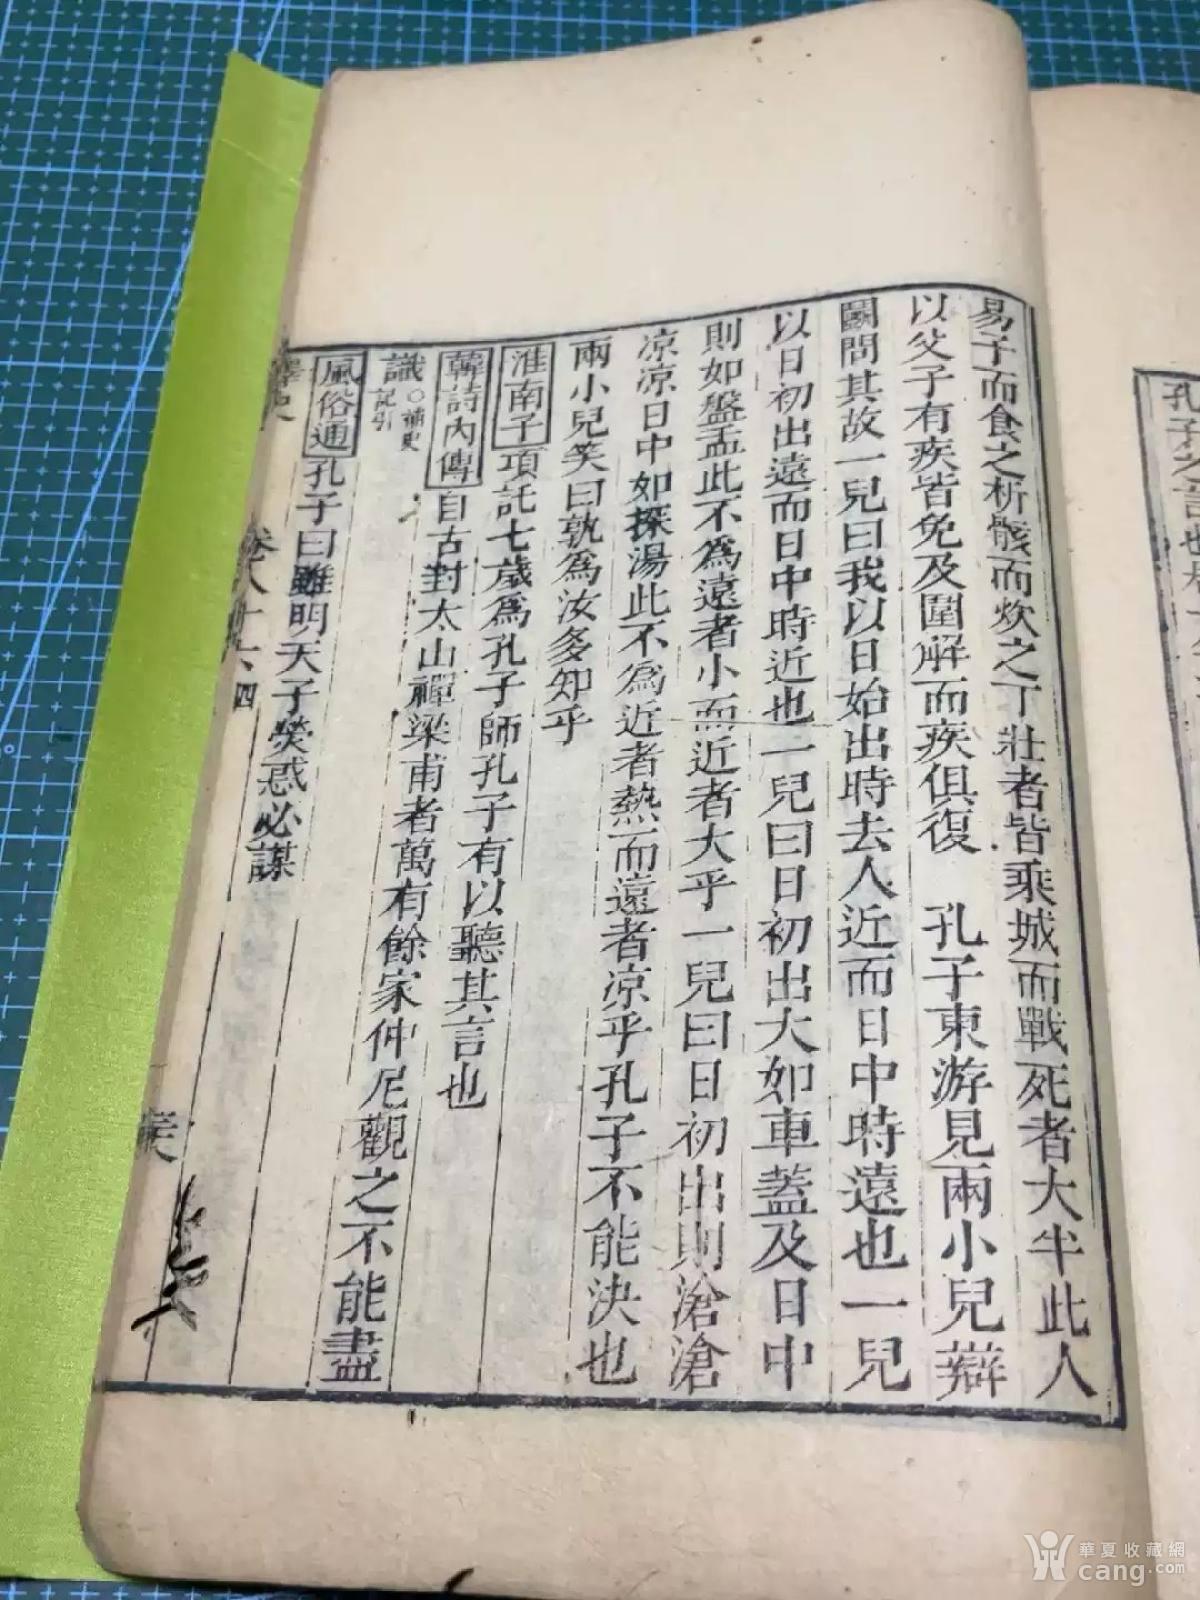 易子而食之析骸而炊之丁壯者皆乘城而戰死者大半此人
以父子有疾皆免及圍解而疾俱復　孔子東游見兩小兒辯
鬭問其故一兒曰我以日始出時去人近而日中時遠也一兒
以日初出遠而日中時近也一兒曰日初出大如車蓋及日中
則如盤盂此不為遠者小而近者大乎一兒曰日初出則滄滄
凉凉日中如探湯此不為近者熱而遠者凉乎孔子不能決也
兩小兒笑曰孰為汝多知乎
淮南子項託七歲為孔子師孔子有以聽其言也
韓詩內傳自古對太山禪梁甫者萬有餘家仲尼觀之不能盡
識○補史
記引
風俗通孔子曰雖明天子熒惑必謀
繹史
卷八十六 四
孔子之言也
華夏收藏網
cang.com